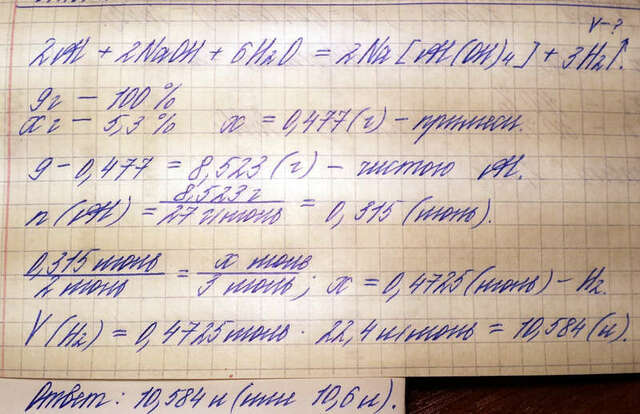 V - ?
2Al + 2NaOH + 6H2O = 2Na[Al(OH)4] + 3H2↑.
9г - 100 %
x г - 5,3 % x = 0,477 (г) - примеси.
9 - 0,477 = 8,523 (г) - чистого Al.
n (Al) = 8,523 г / 27 г/моль = 0,315 (моль).
0,315 моль / 2 моль = x моль / 3 моль; x = 0,4725 (моль) - H2.
V (H2) = 0,4725 моль · 22,4 л/моль = 10,584 (л).
Ответ: 10,584 л (или 10,6 л).